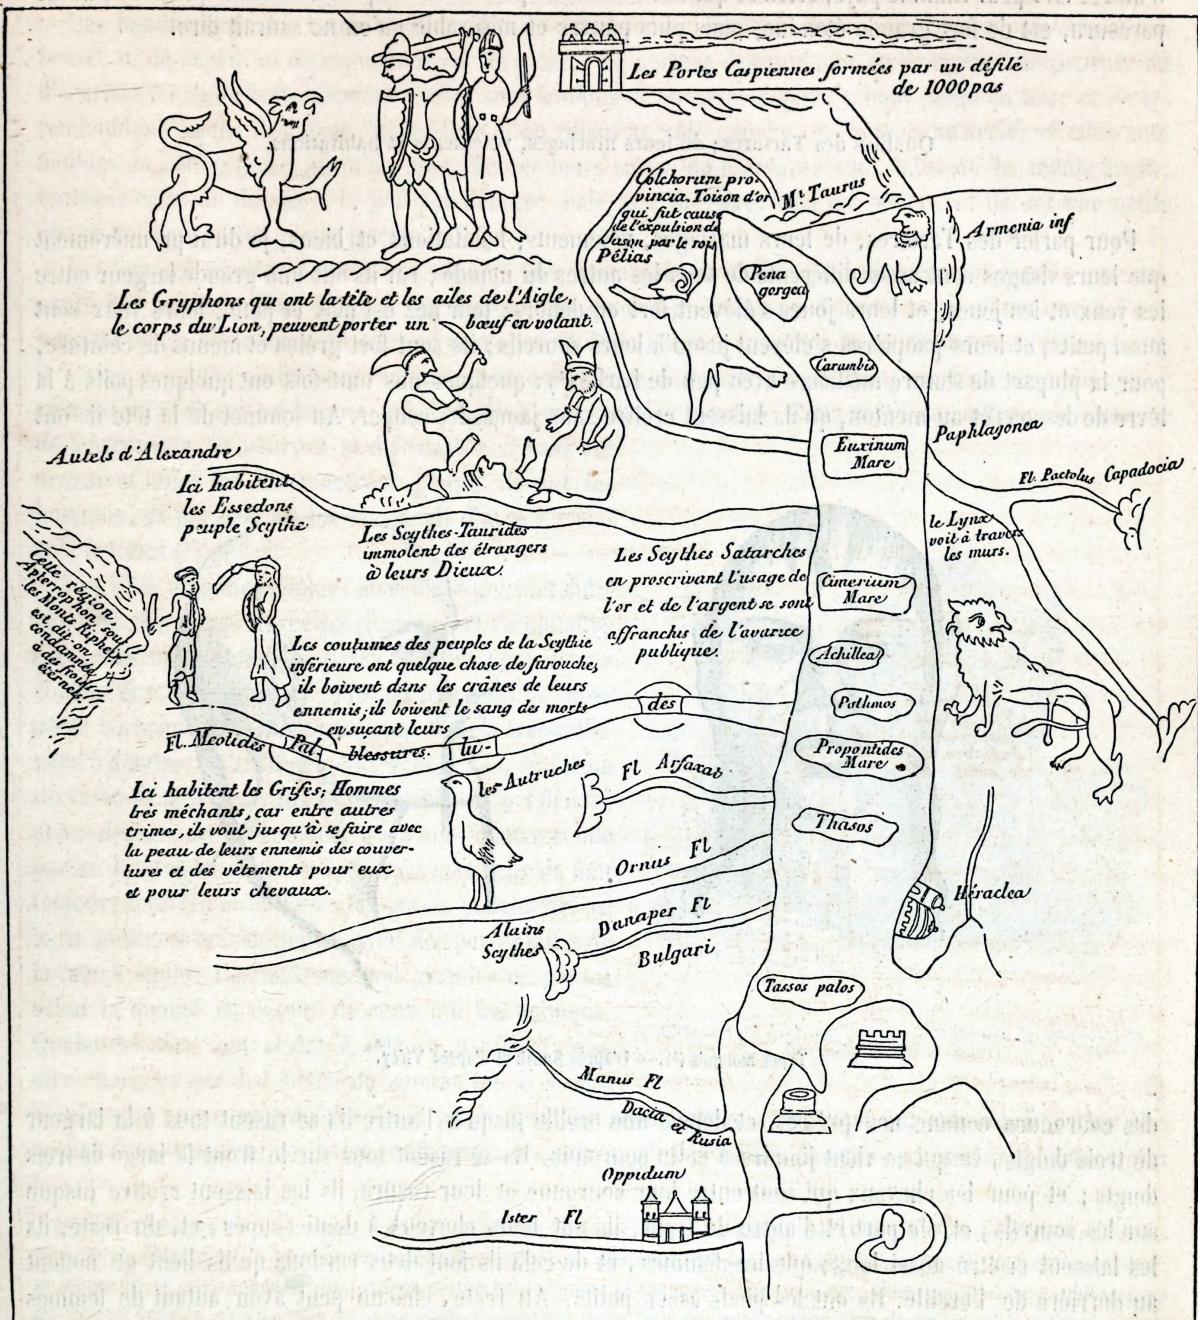 Les Portes Caspiennes formées par un défilé
de 1000 pas
Colchorum pro-
vincia. Toison d'or
qui fut cause
de l'expulsion de
Jason par le roi
Pélias
Mt. Taurus
Armenia inf
Pena
gorgea
Les Gryphons qui ont la tête et les ailes de l'Aigle,
le corps du Lion, peuvent porter un bœuf en volant.
Carambis
Euxinum
Mare
Paphlagonea
Fl. Pactolus Capadocia
Autels d'Alexandre
Ici habitent
les Essedons
peuple Scythe
Les Scythes-Taurides
immolent des étrangers
à leurs Dieux.
Les Scythes Satarches
en proscrivant l'usage de
l'or et de l'argent se sont
affranchis de l'avarice
publique.
le Lynx
voit à travers
les murs.
Cimerium
Mare
Cette région
Apterophon, sous
les Monts Riphei
est, dit on
condamnée
à des froids
éternels
Les coutumes des peuples de la Scythie
inférieure ont quelque chose de farouche,
ils boivent dans les crânes de leurs
ennemis; ils boivent le sang des morts
en suçant leurs
blessures.
Achillea
Pathmos
Fl. Meotides Pal lu- des
Propontides
Mare
Ici habitent les Grifes, Hommes
très méchants, car entre autres
crimes, ils vont jusqu'à se faire avec
la peau de leurs ennemis des couver-
tures et des vêtements pour eux
et pour leurs chevaux.
les Autruches
Fl Arfaxat
Thasos
Ornus Fl
Héraclea
Danaper Fl
Alains
Scythes
Bulgari
Tassos palos
Manus Fl
Dacia
et Rusia
Oppidum
Ister Fl